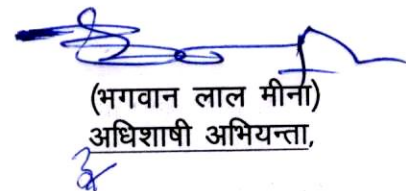 (भगवान लाल मीना)
अधिशाषी अभियन्ता,